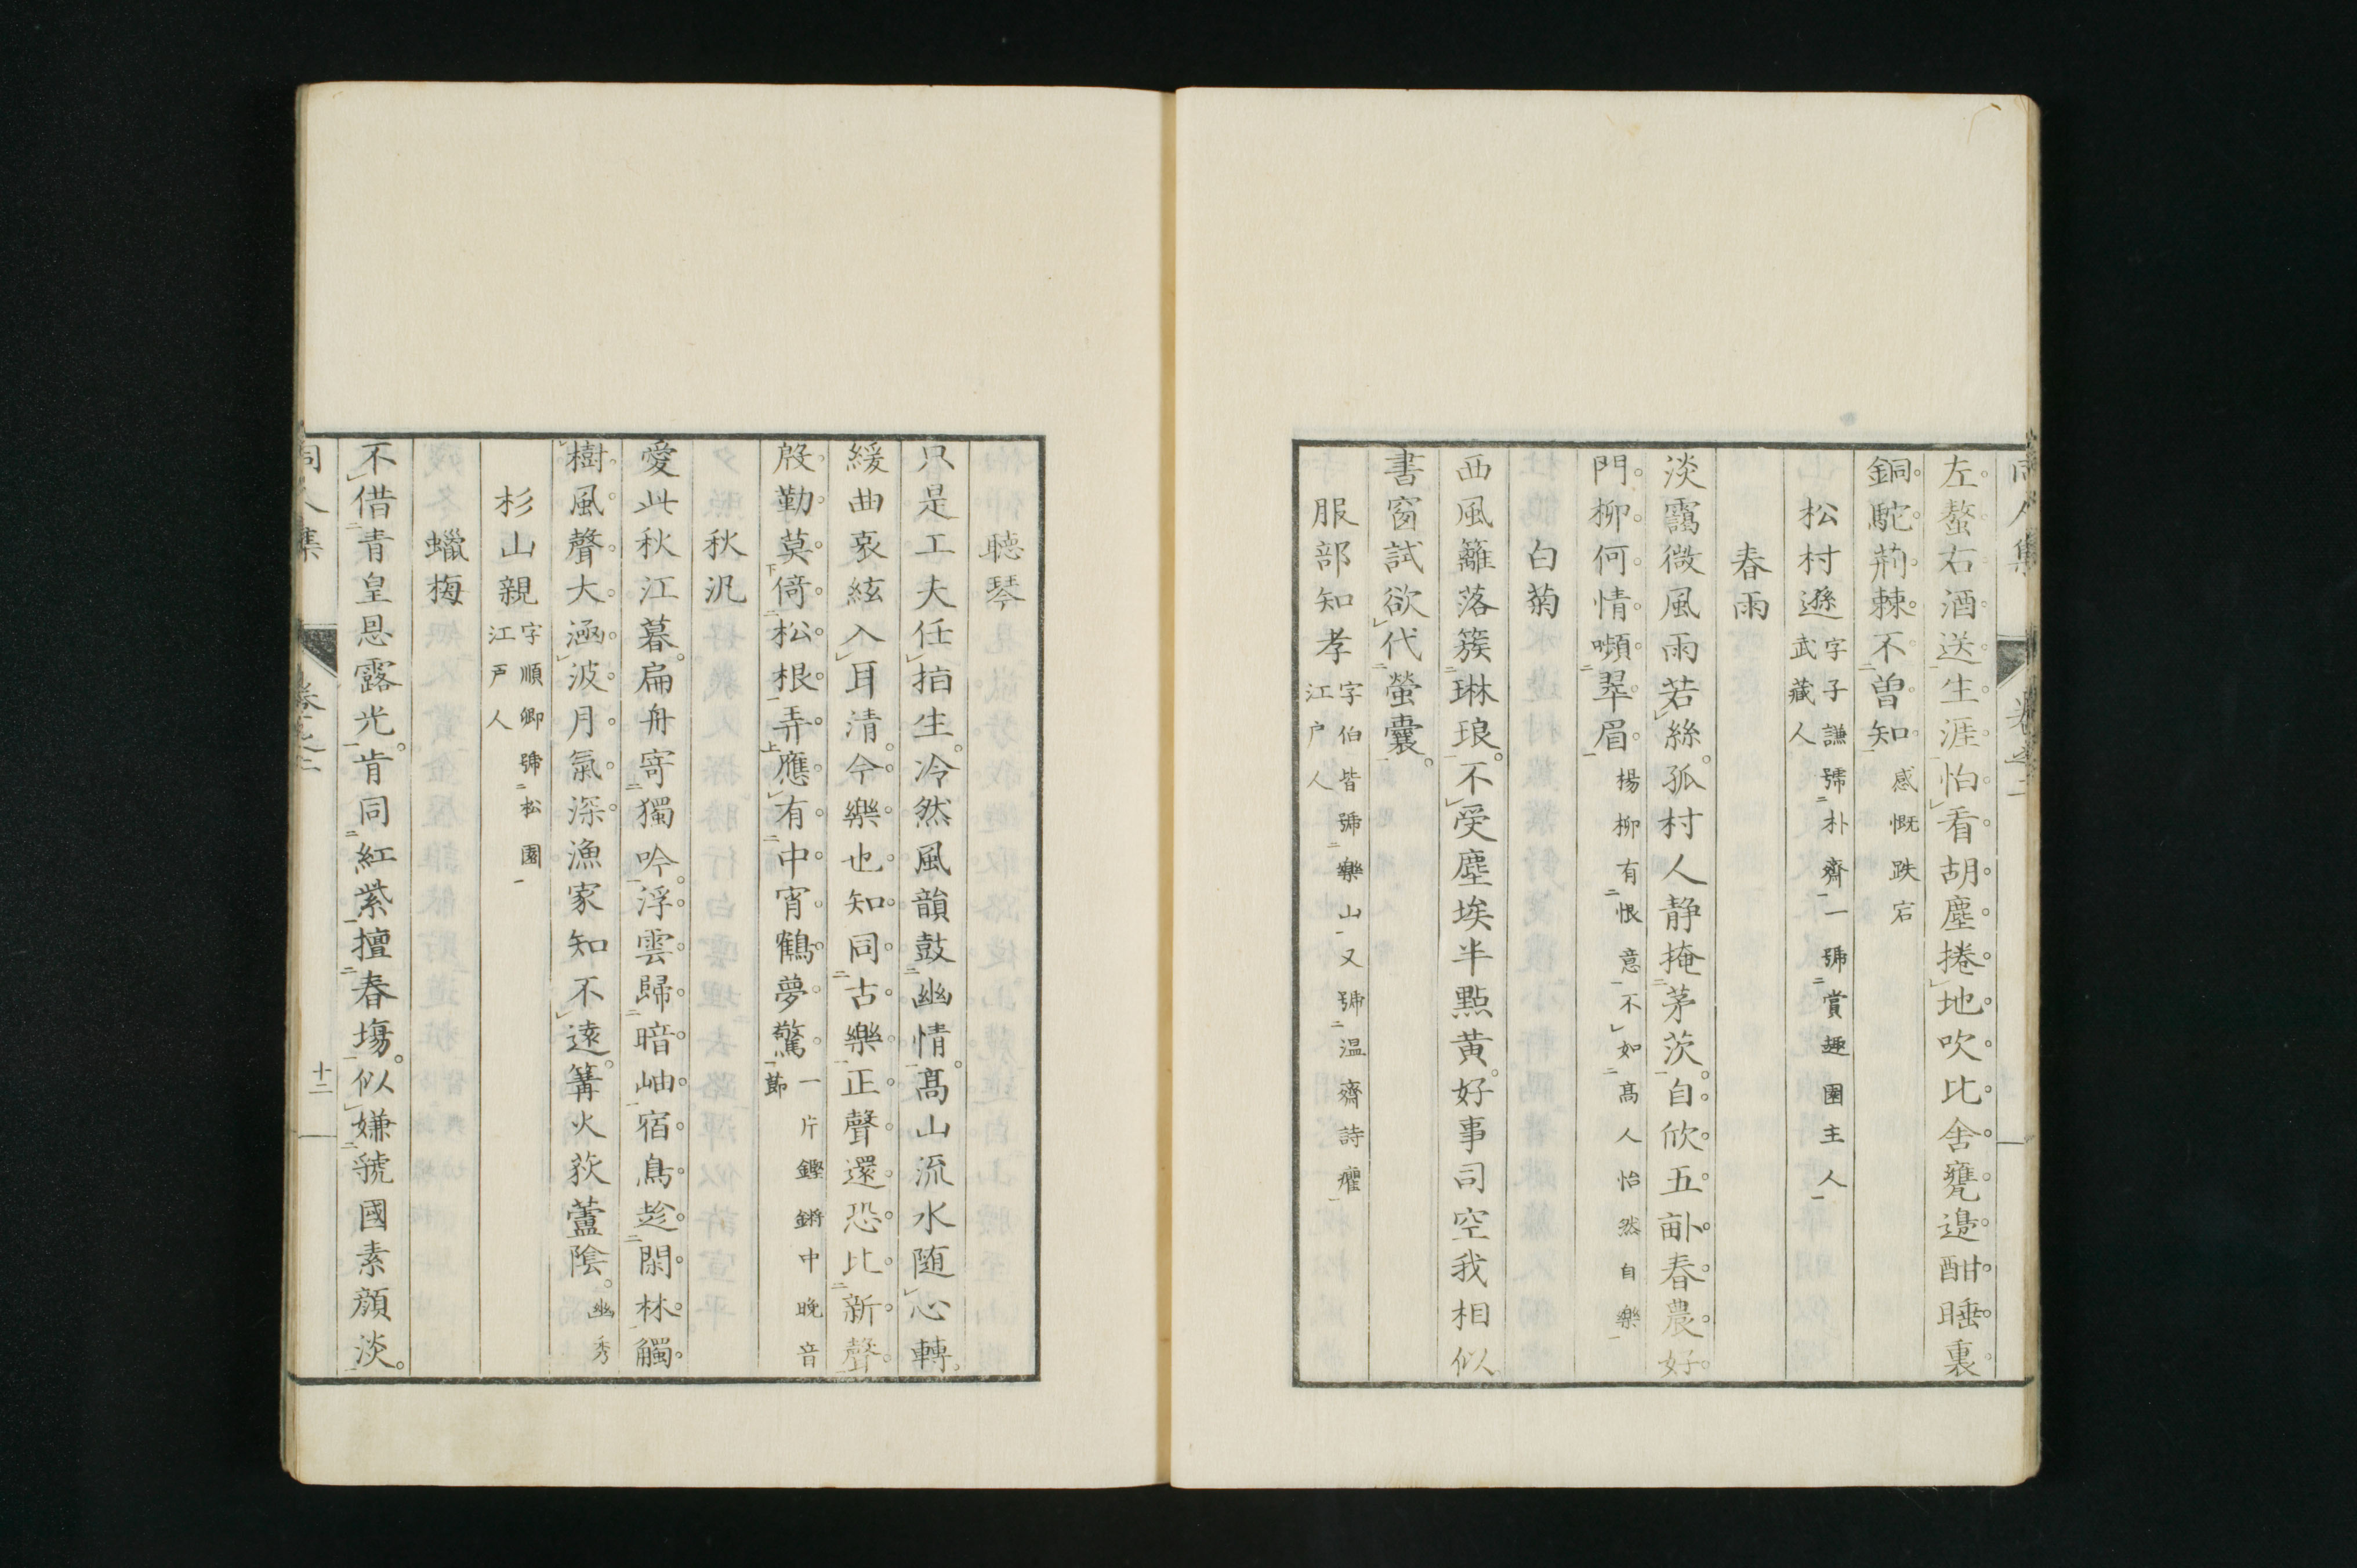 左螯右酒送生涯怕看胡塵捲地吹比舍甕邊酣睡裏
銅駝荊棘不曽知 感慨跌宕
松村遜 字子謙號朴齋一號賞趣園主人 武藏人
春雨
淡靄微風雨若絲孤村人静掩茅茨自欣五畝春農好
門柳何情嚬翠眉 楊柳有恨意不如髙人怡然自樂
白菊
西風籬落簇琳琅不受塵埃半點黄好事司空我相似
書窗試欲代螢囊
服部知孝 字伯皆號樂山又號温齋詩癯 江户人
聴琴
只是工夫任指生冷然風韻鼓幽情髙山流水随心轉
緩曲哀絃入耳清今樂也知同古樂正聲還恐比新聲
殷勤莫倚松根弄應有中宵鶴夢驚 一片鏗鏘中晩音節
秋汎
愛此秋江暮扁舟寄獨吟浮雲歸暗岫宿鳥趁閑林觸
樹風聲大涵波月氣深漁家知不遠篝火荻蘆陰 幽秀
杉山親 字順卿號松園 江戸人
蠟梅
不借青皇恩露光肯同紅紫擅春塲似嫌虢國素顔淡
同人集 卷之二 十二